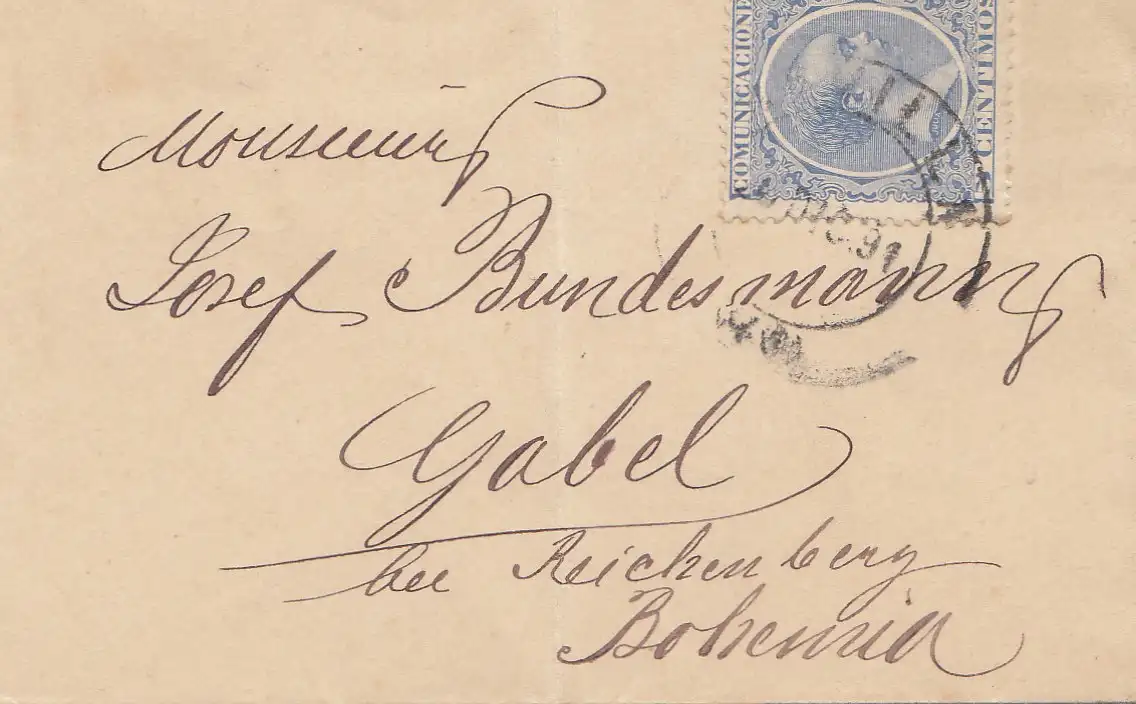 COMUNICACIONE
CENTIMOS
DIC. 91
Monsieur
Josef Bundesmann
Gabel
bei Reichenberg
Bohemia